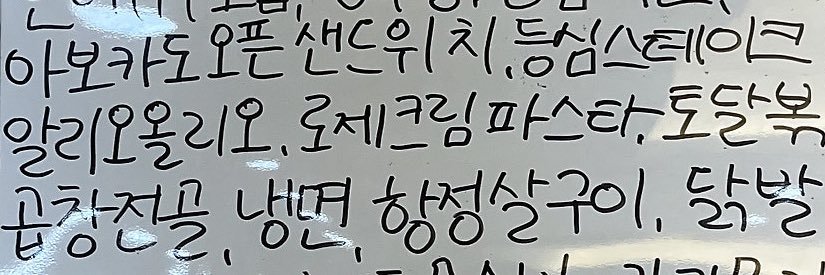 아보카도오픈샌드위치, 등심스테이크
알리오올리오, 로제크림파스타, 토달볶
곱창전골, 냉면, 항정살구이, 닭발